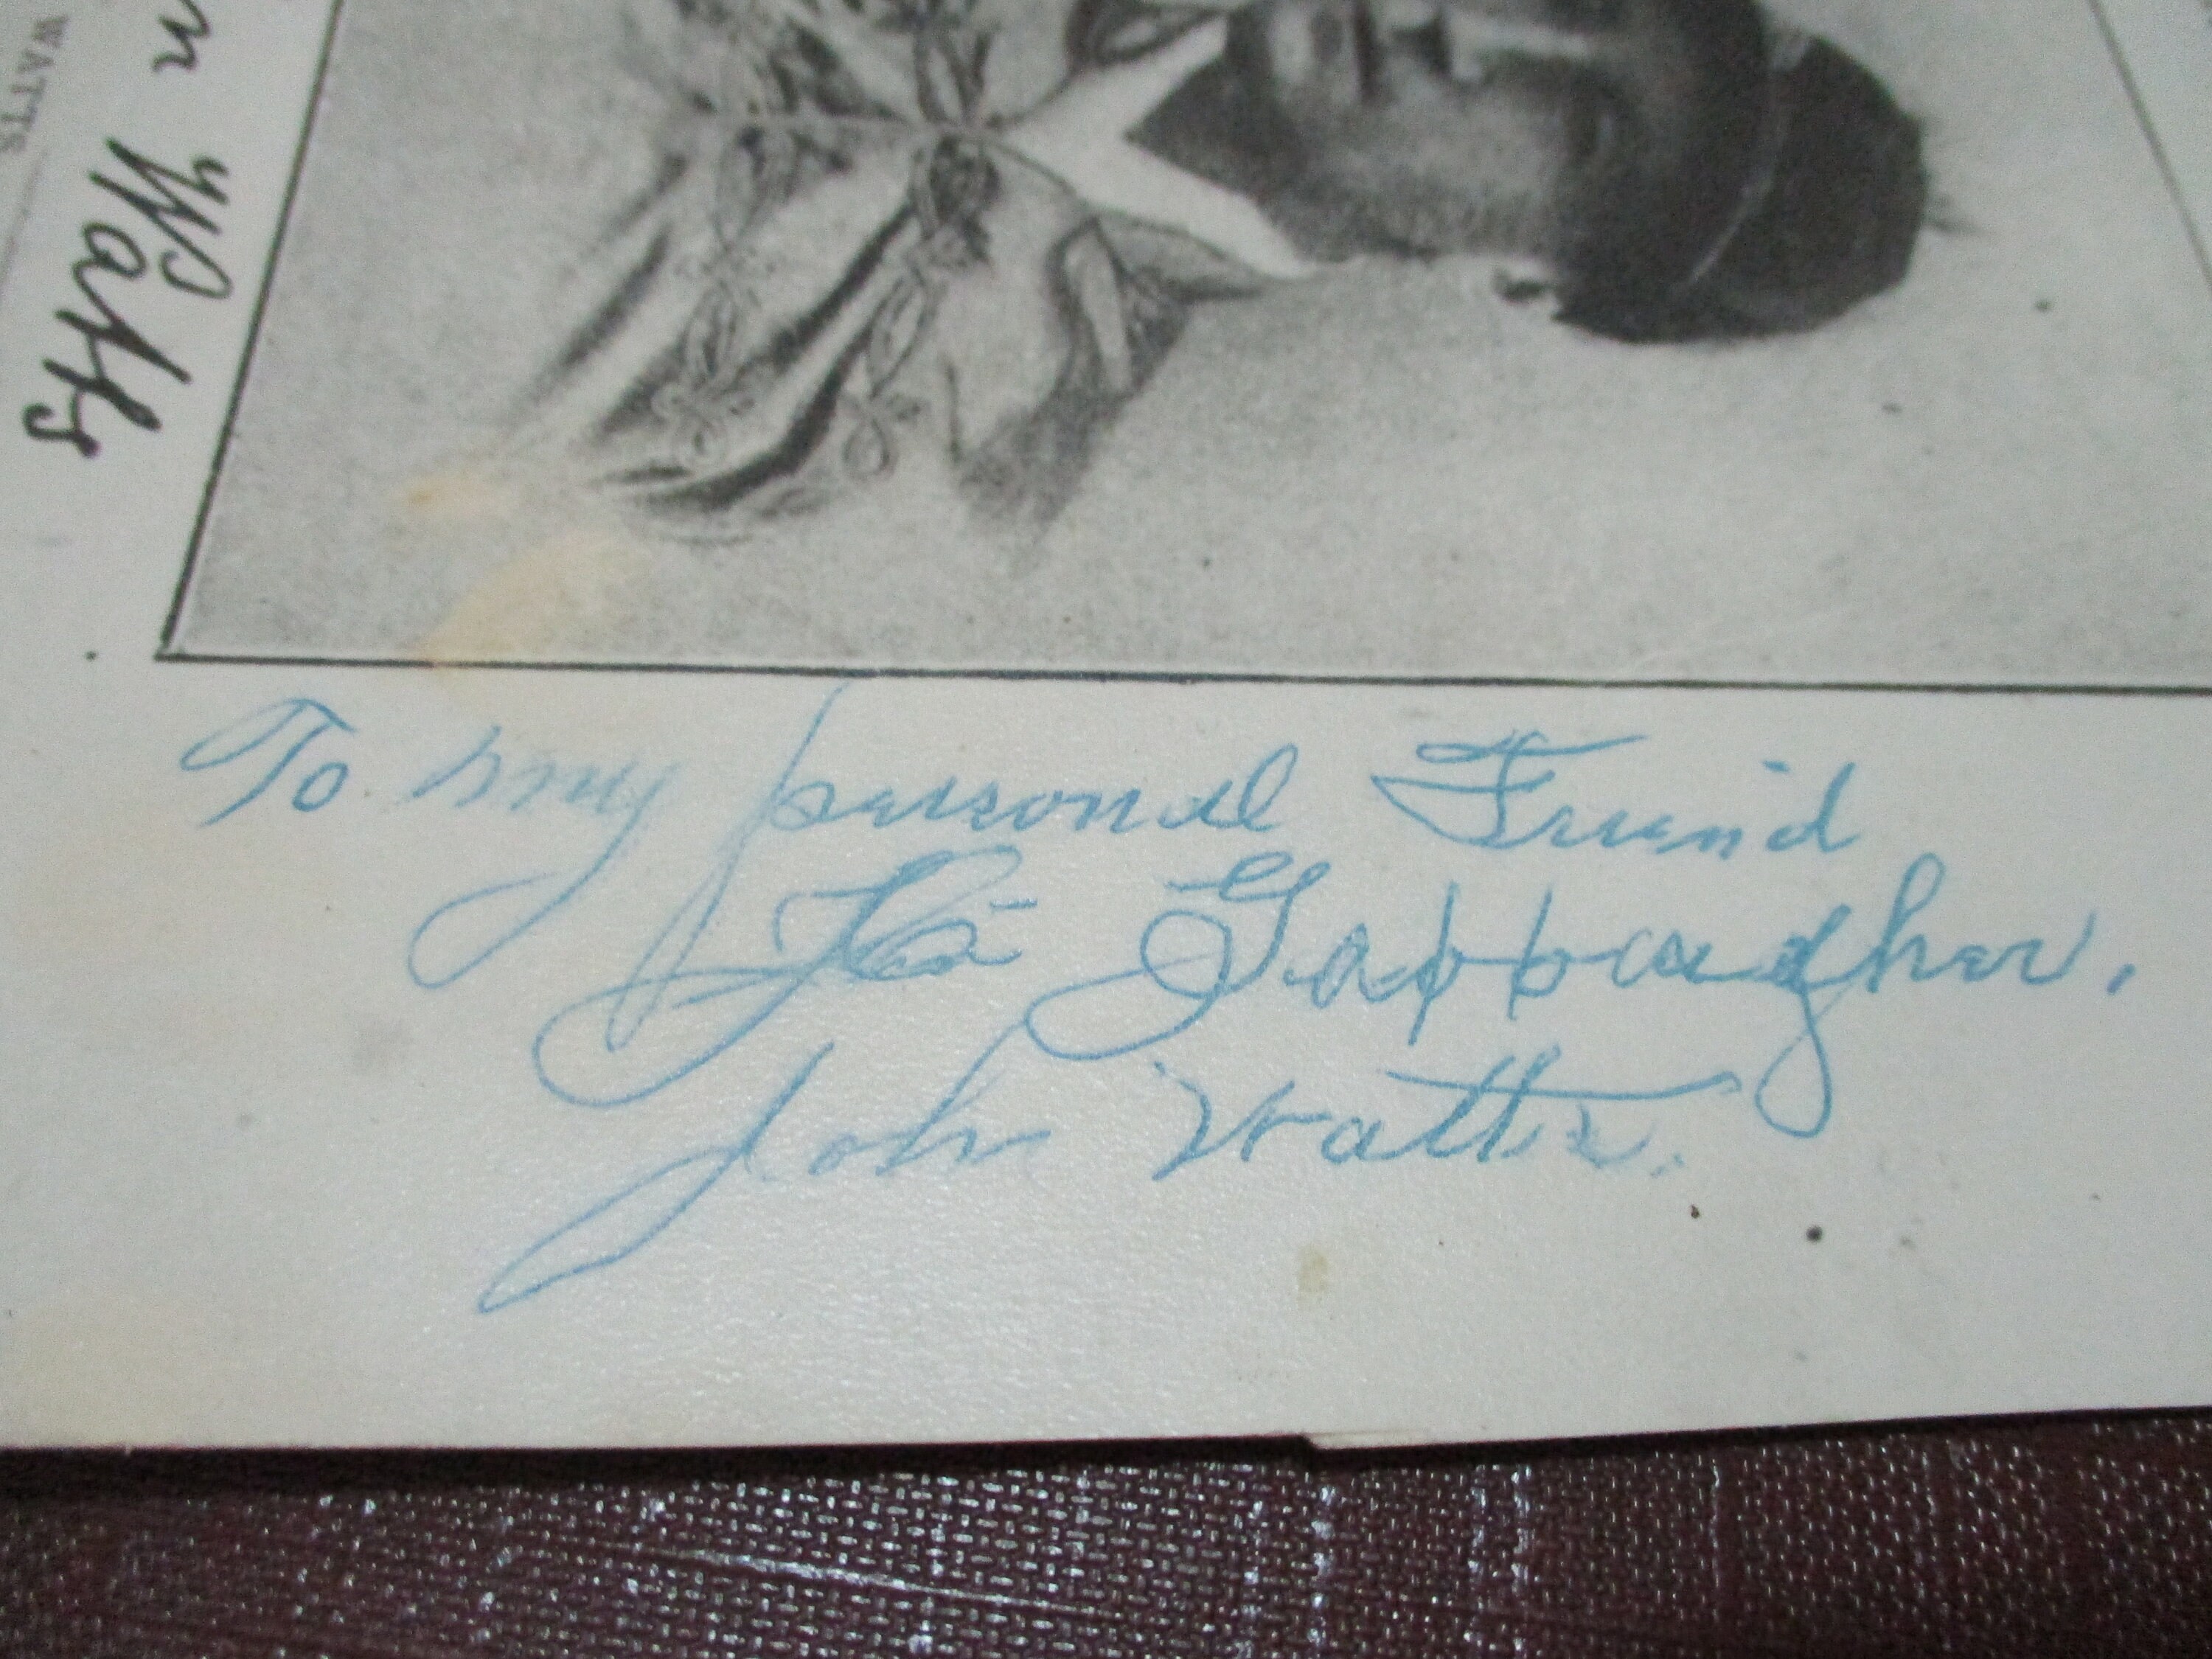 WATTS
n Watts
To my personal Friend
John Watts.